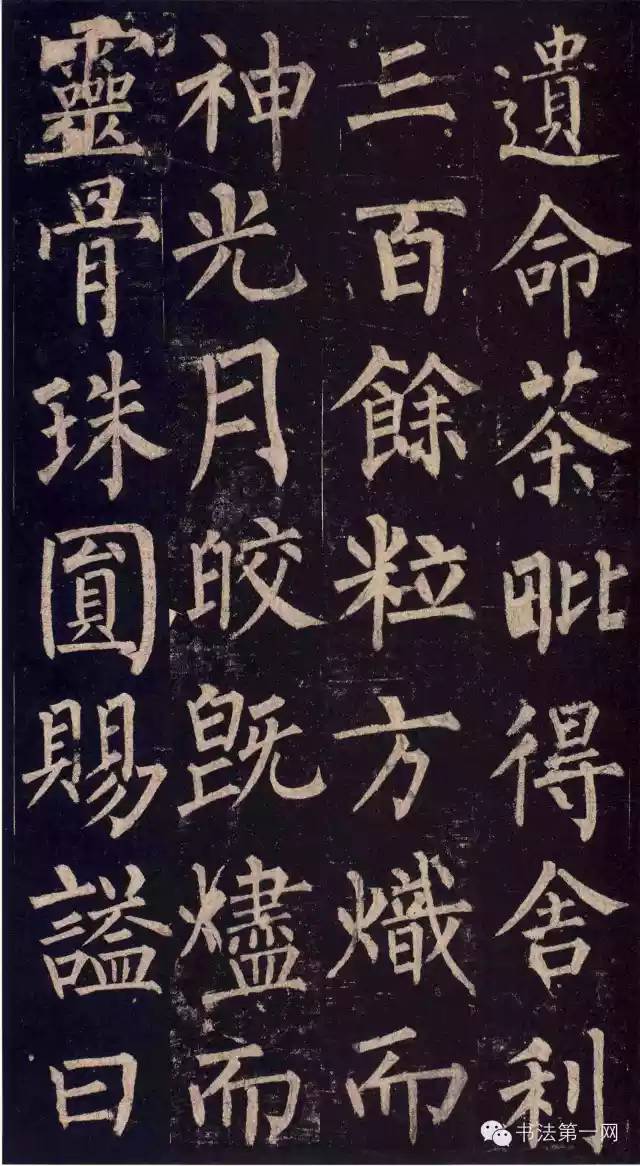 遺命茶毗得舍利
三百餘粒方熾而
神光月皎既燼而
靈骨珠圓賜謚曰
书法第一网